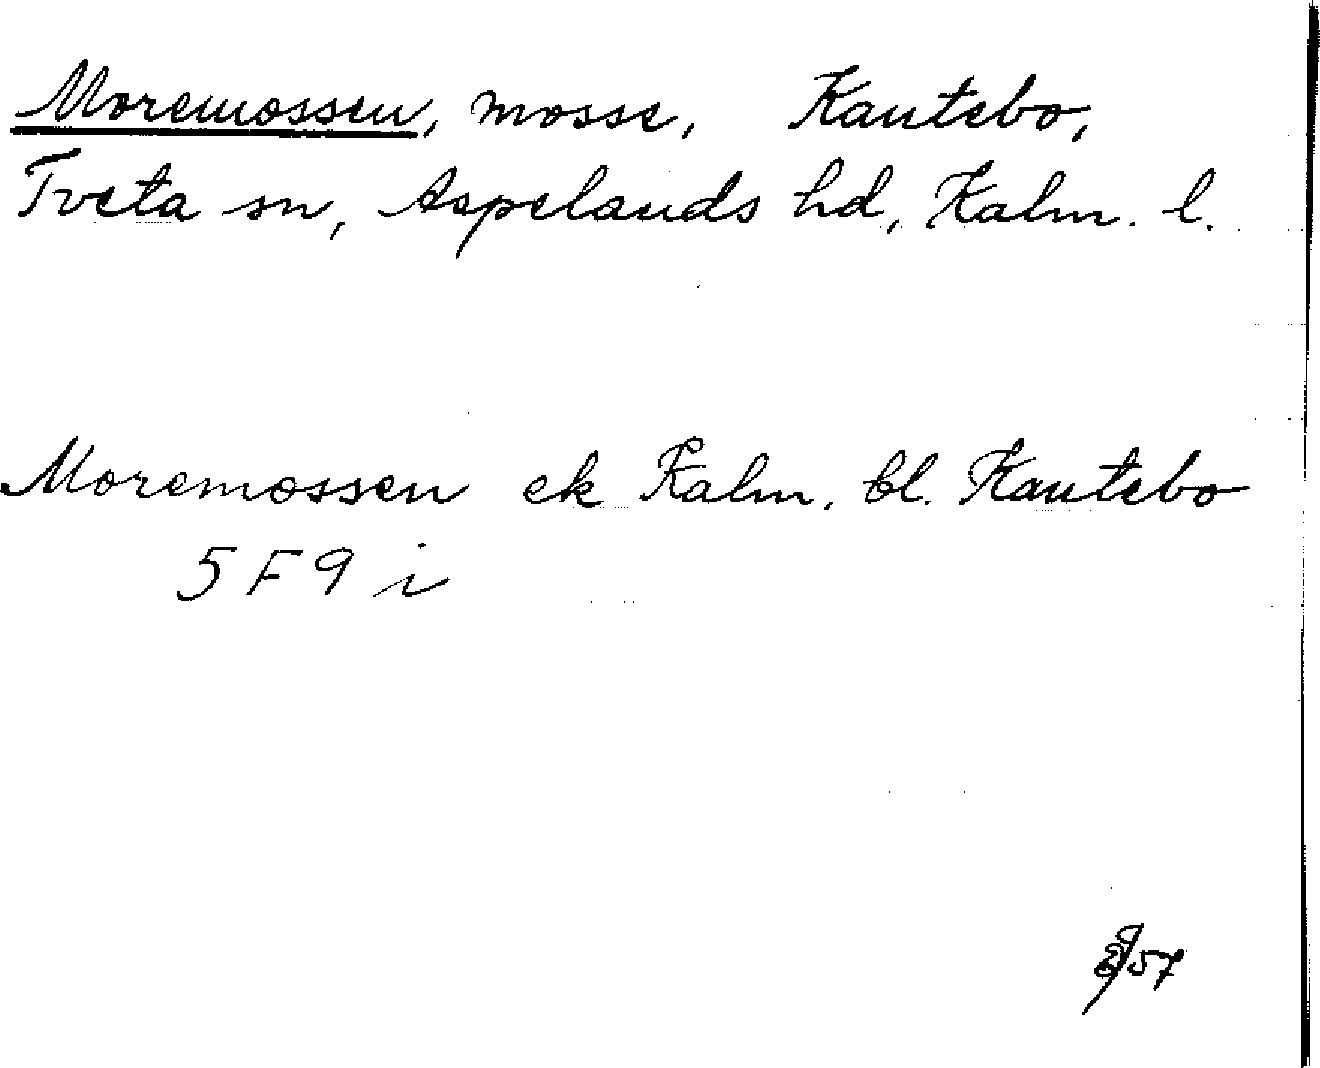 Moremossen, mosse, Kantebo,
Tveta sn, Aspelands hd, Kalm. l.
Moremossen ek Kalm. bl. Kantebo
5 F 9 i
57